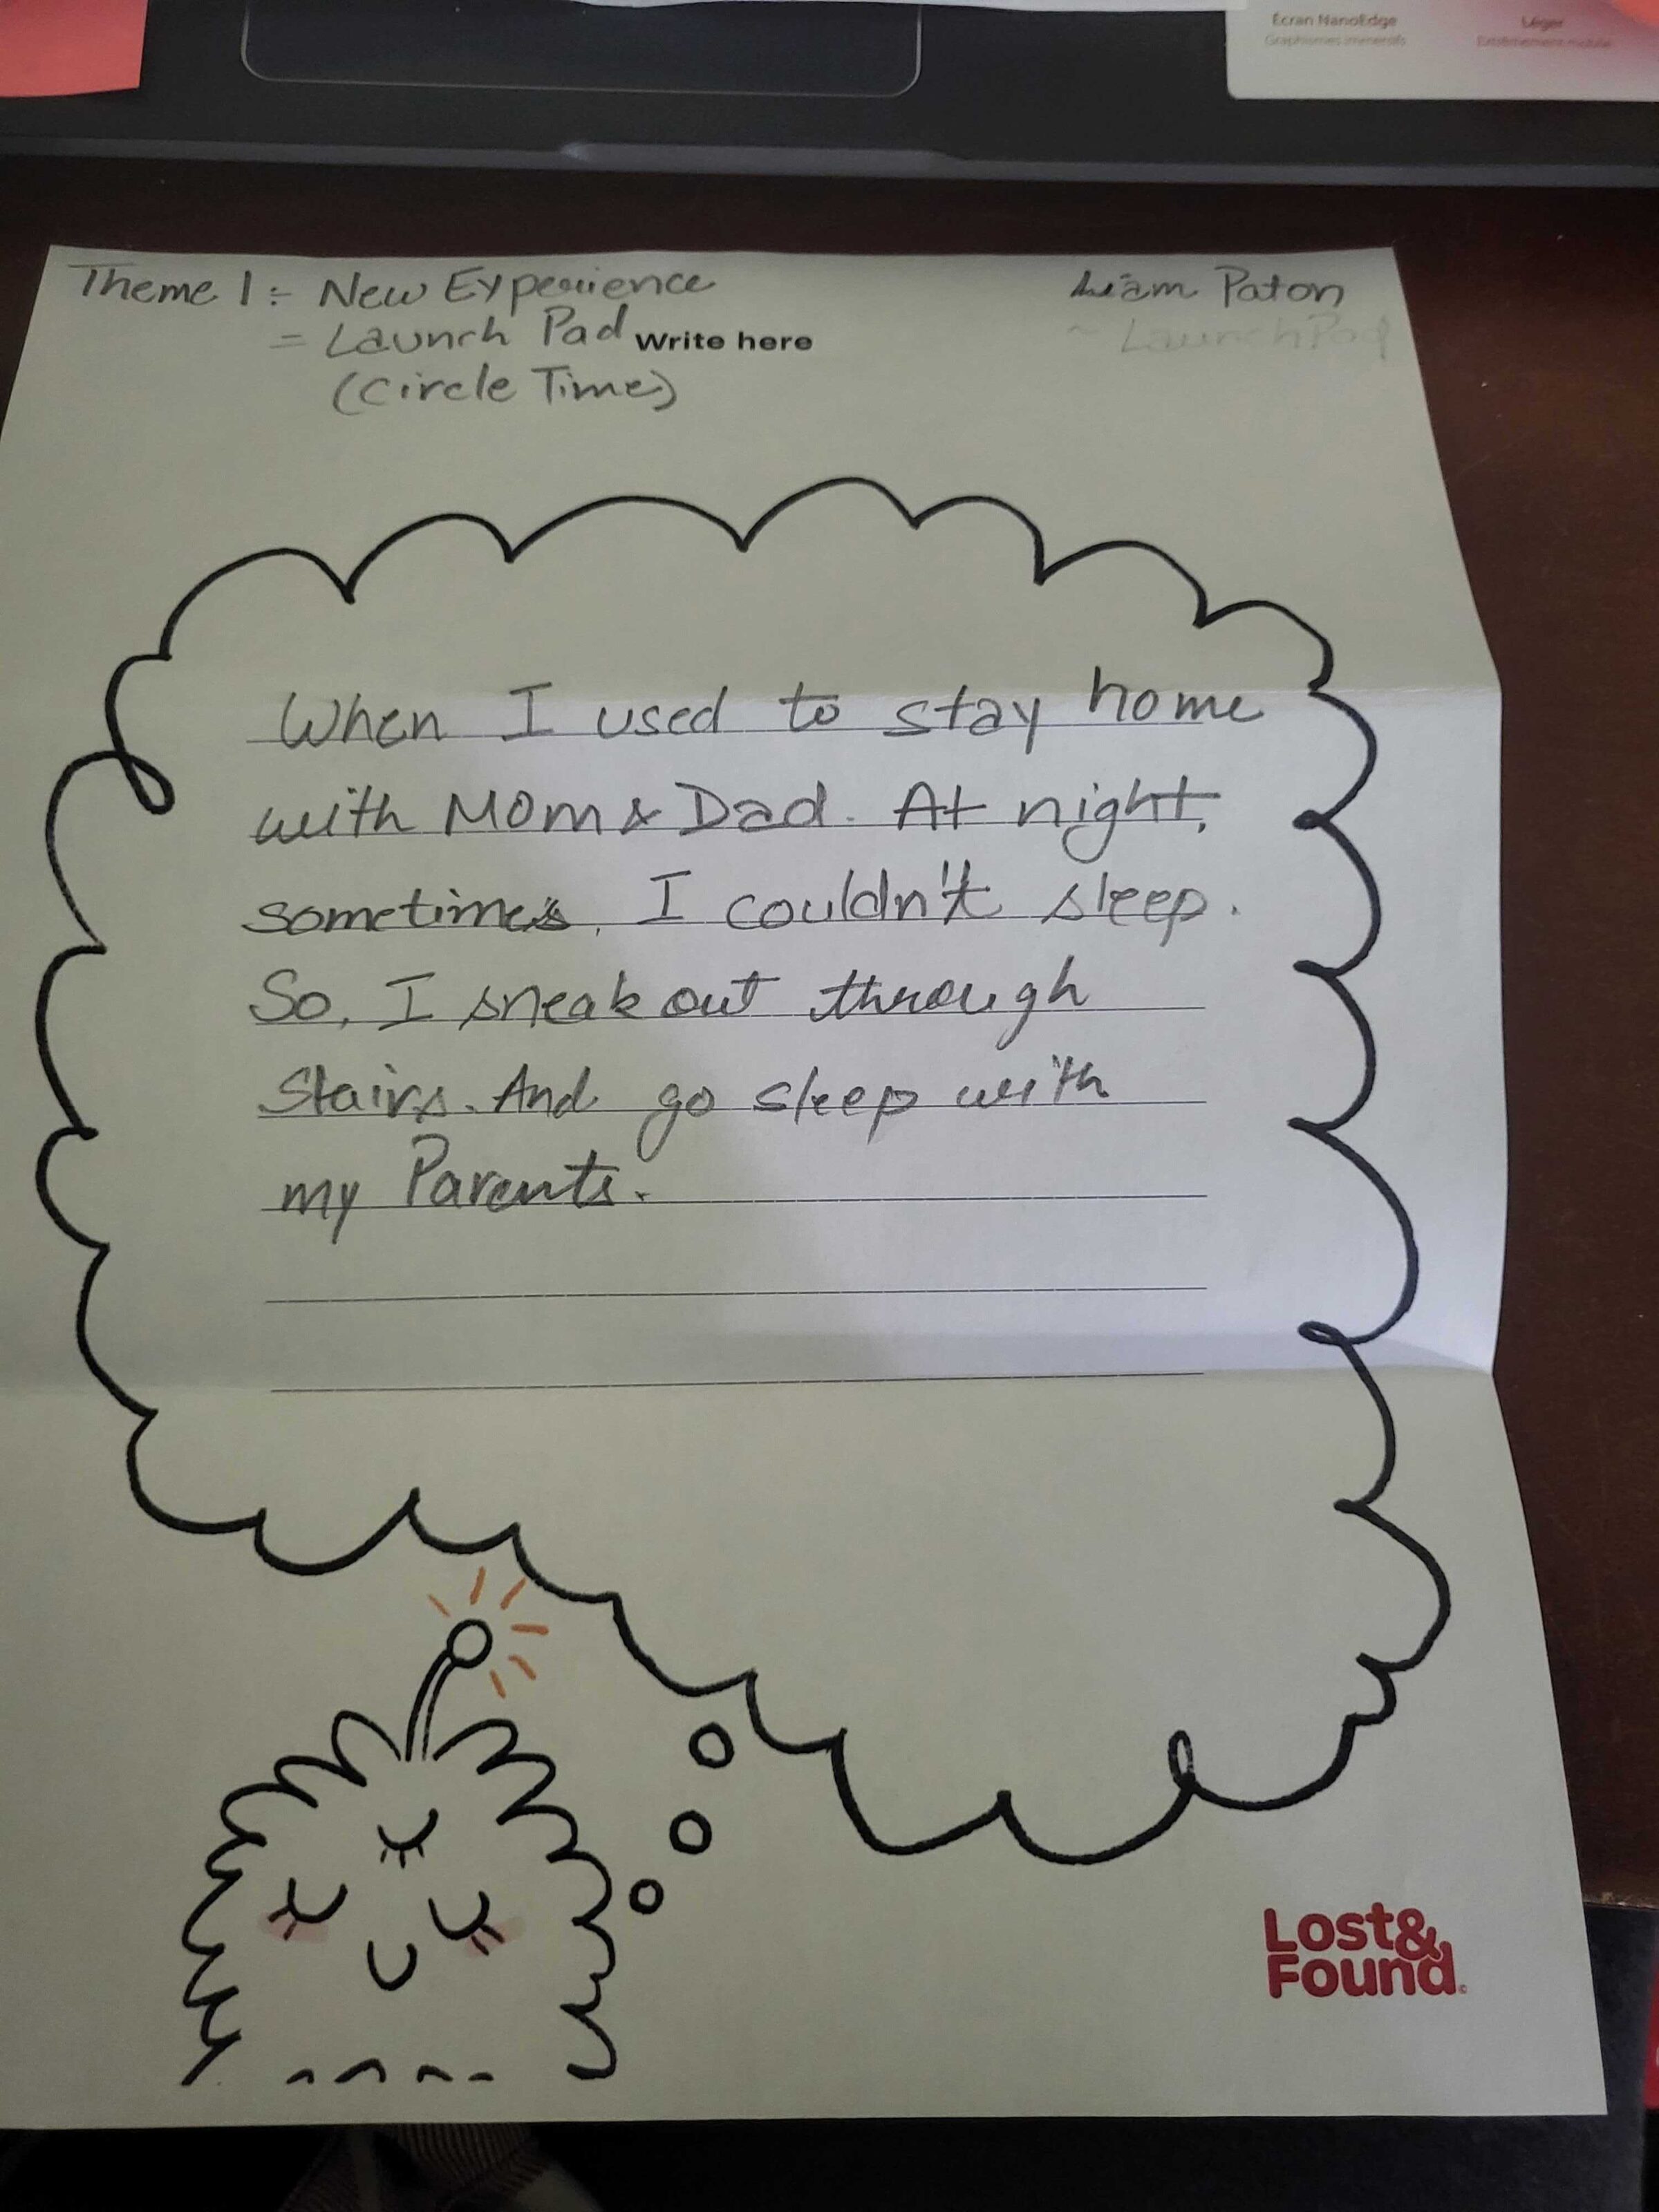 Écran NanoEdge
Léger
Graphismes immersifs
Theme 1 :- New Experience
Liam Paton
= Launch Pad
Write here
~ LaunchPad
(Circle Time)
When I used to stay home
with Mom & Dad. At night,
sometimes, I couldn't sleep.
So, I sneak out through
Stairs. And go sleep with
my Parents.
Lost&
Found